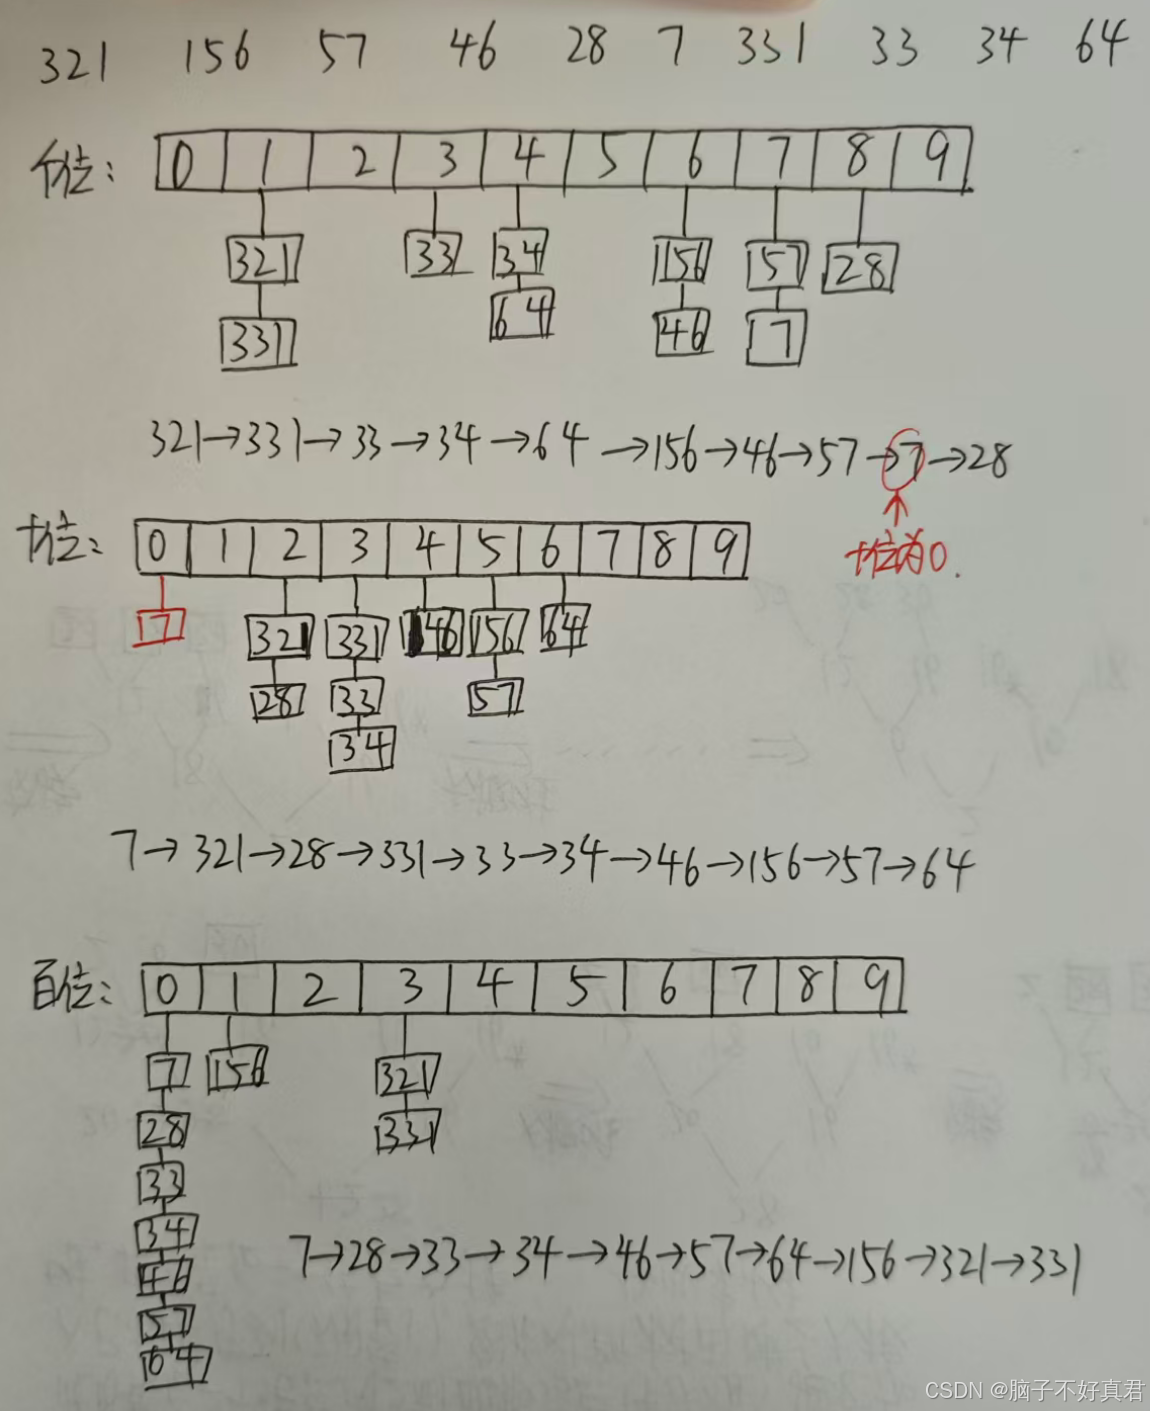 321 156 57 46 28 7 331 33 34 64
个位: 0 1 2 3 4 5 6 7 8 9
321 33 34 156 57 28
331 64 46 7
321→331→33→34→64→156→46→57→7→28
十位: 0 1 2 3 4 5 6 7 8 9
十位为0.
7 321 331 46 156 64
28 33 57
34
7→321→28→331→33→34→46→156→57→64
百位: 0 1 2 3 4 5 6 7 8 9
7 156 321
28 331
33
34
7→28→33→34→46→57→64→156→321→331
46
57
64
CSDN @脑子不好真君